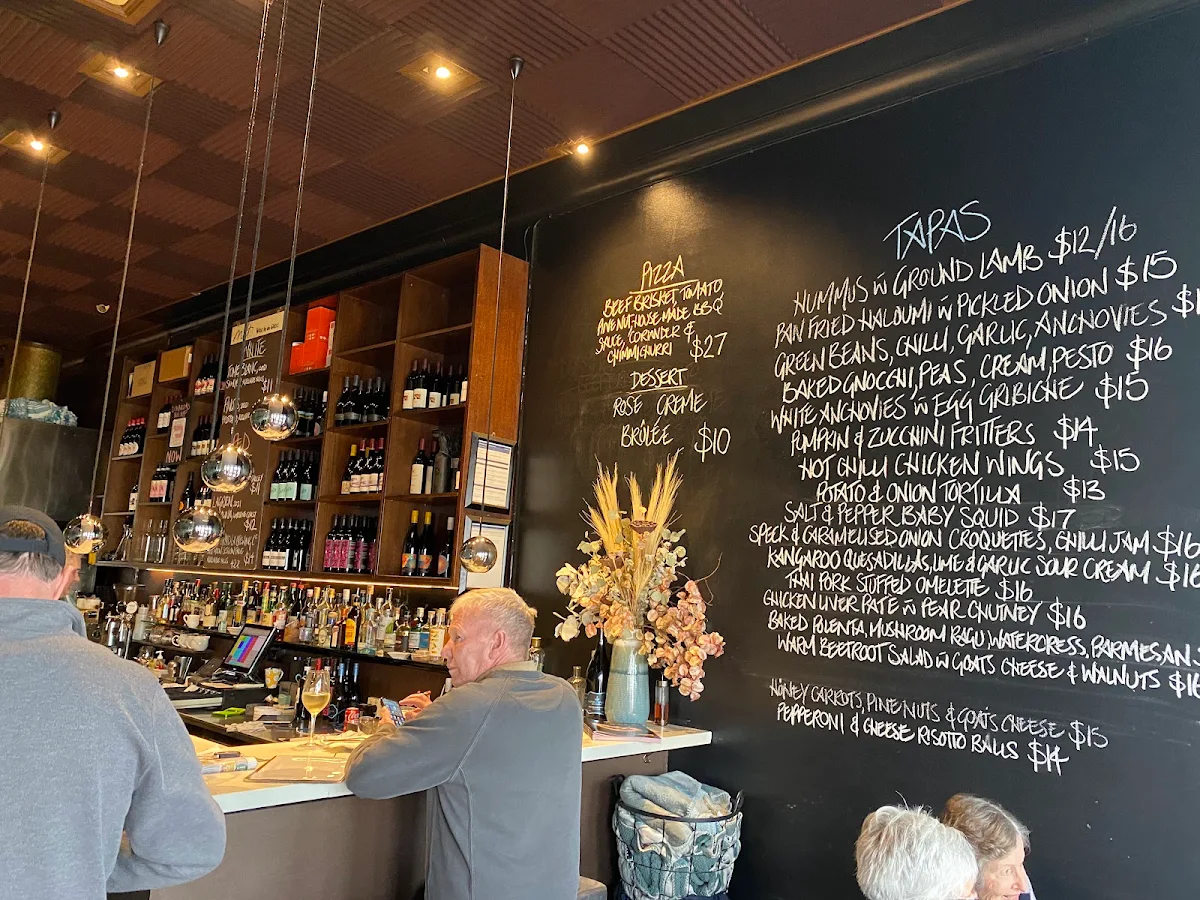 PIZZA
BEEF BRISKET TOMATO
PINE NUT HOUSE MADE BBQ
SAUCE, CORIANDER &
CHIMMICHURRI $27
DESSERT
ROSE CREME
BRÛLÉE $10
TAPAS
HUMMUS w̄ GROUND LAMB $12/16
PAN FRIED HALOUMI w̄ PICKLED ONION $15
GREEN BEANS, CHILLI, GARLIC, ANCHOVIES
BAKED GNOCCHI, PEAS, CREAM, PESTO $16
WHITE ANCHOVIES w̄ EGG GRIBICHE $15
PUMPKIN & ZUCCHINI FRITTERS $14
HOT CHILLI CHICKEN WINGS $15
POTATO & ONION TORTILLA $13
SALT & PEPPER BABY SQUID $17
SPECK & CARAMELISED ONION CROQUETTES, CHILLI JAM $16
KANGAROO QUESADILLAS, LIME & GARLIC SOUR CREAM
THAI PORK STUFFED OMELETTE $16
CHICKEN LIVER PATE w̄ PEAR CHUTNEY $16
BAKED POLENTA, MUSHROOM RAGU, WATERCRESS, PARMESAN
WARM BEETROOT SALAD w̄ GOATS CHEESE & WALNUTS
HONEY CARROTS, PINENUTS & GOATS CHEESE $15
PEPPERONI & CHEESE RISOTTO BALLS $14